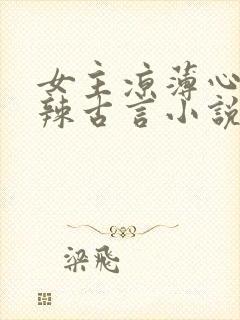 女主凉薄心
辣古言小說
梁飛